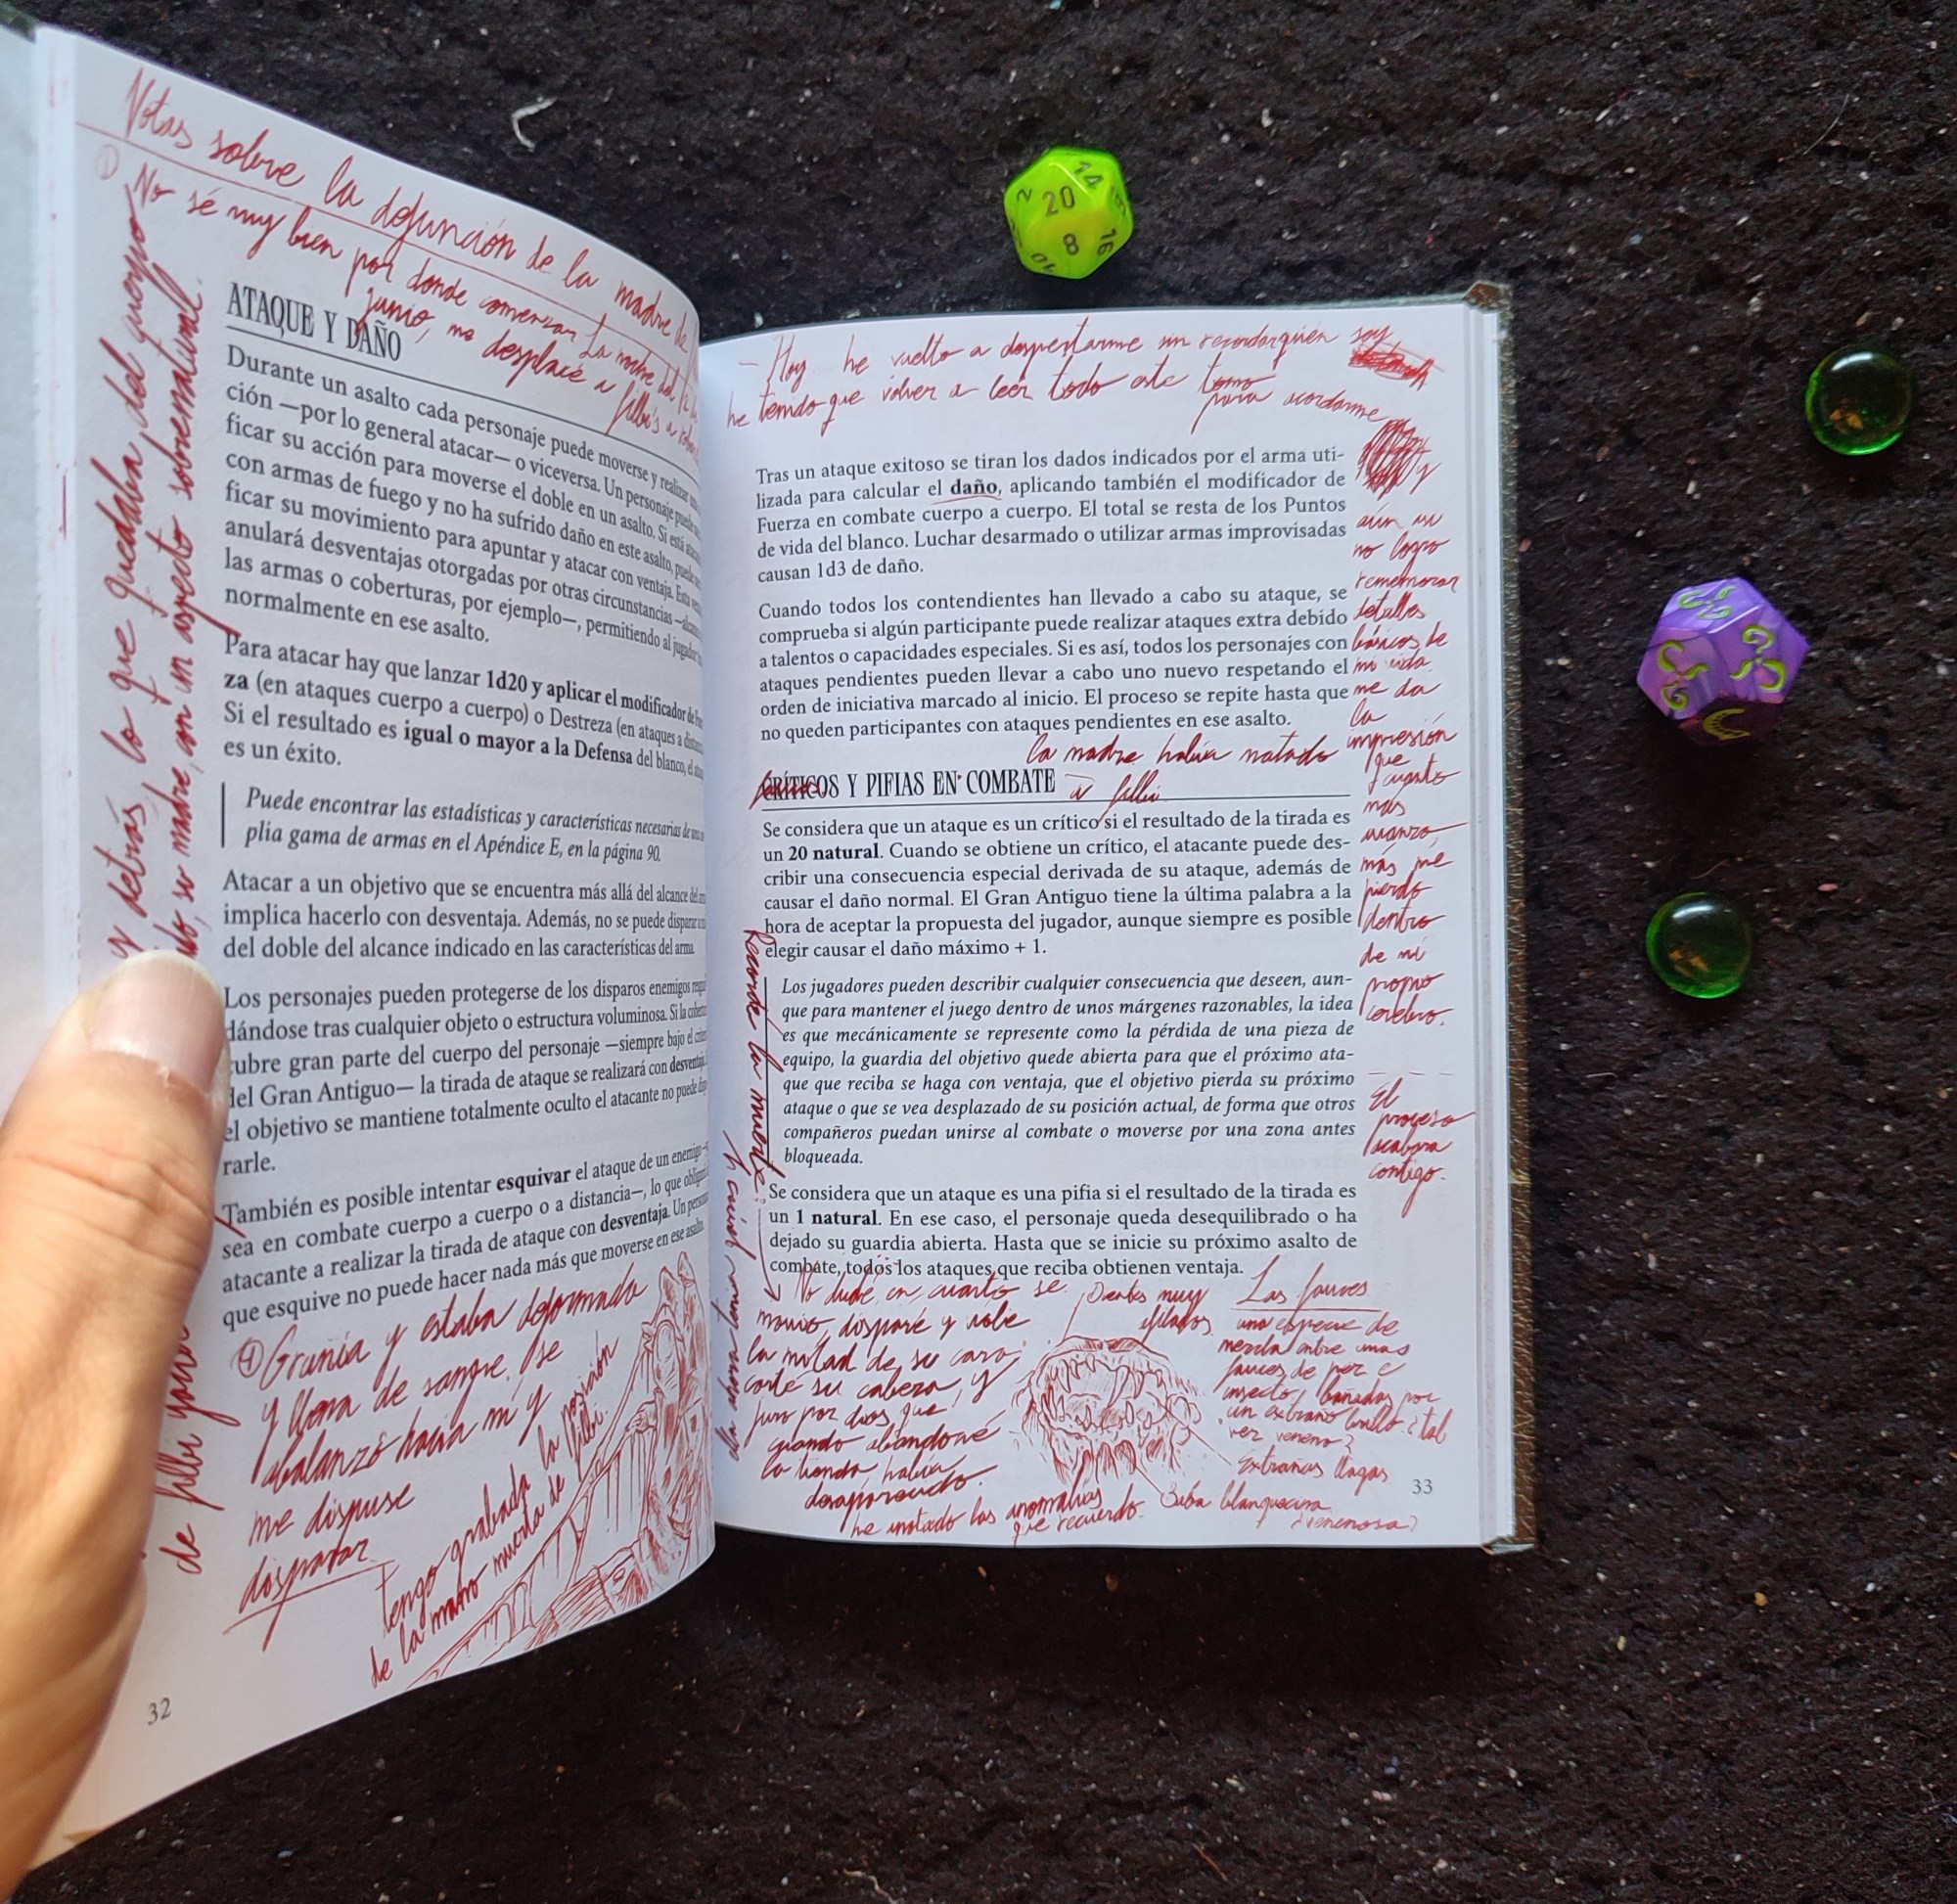 Notas sobre la defunción de la madre de
① No sé muy bien por donde comenzar. La noche del
junio, me desplacé a
ATAQUE Y DAÑO
Durante un asalto cada personaje puede moverse y realizar una
ción —por lo general atacar— o viceversa. Un personaje puede
ficar su acción para moverse el doble en un asalto. Si está
con armas de fuego y no ha sufrido daño en este asalto, puede
ficar su movimiento para apuntar y atacar con ventaja. Esta
anulará desventajas otorgadas por otras circunstancias
las armas o coberturas, por ejemplo—, permitiendo al jugador
normalmente en ese asalto.
Para atacar hay que lanzar 1d20 y aplicar el modificador de
za (en ataques cuerpo a cuerpo) o Destreza (en ataques a
Si el resultado es igual o mayor a la Defensa del blanco, el
es un éxito.
Puede encontrar las estadísticas y características necesarias de
plia gama de armas en el Apéndice E, en la página 90.
Atacar a un objetivo que se encuentra más allá del alcance del
implica hacerlo con desventaja. Además, no se puede disparar
del doble del alcance indicado en las características del arma.
Los personajes pueden protegerse de los disparos enemigos
dándose tras cualquier objeto o estructura voluminosa. Si la
cubre gran parte del cuerpo del personaje —siempre bajo el
del Gran Antiguo— la tirada de ataque se realizará con
el objetivo se mantiene totalmente oculto el atacante no puede
rarle.
También es posible intentar esquivar el ataque de un enemigo
sea en combate cuerpo a cuerpo o a distancia—, lo que
atacante a realizar la tirada de ataque con desventaja. Un
que esquive no puede hacer nada más que moverse en ese asalto.
y detrás, lo que quedaba del cuerpo
su madre, con un aspecto sobrenatural.
④ Grunía y estaba deformada
y llena de sangre. Se
abalanzó hacia mí y
me dispuse
disparar
tengo grabada la posición
de la madre muerta de
32
— Hoy he vuelto a despertarme sin recordar quién soy
he tenido que volver a leer todo este tomo
para acordarme
y
aún
no logro
rememorar
detalles
básicos de
mi vida.
me da
la
impresión
que
cuanto
más
avanzo,
más me
pierdo
dentro
de mi
propio
cerebro.
El
proceso
acabará
contigo.
Tras un ataque exitoso se tiran los dados indicados por el arma uti-
lizada para calcular el daño, aplicando también el modificador de
Fuerza en combate cuerpo a cuerpo. El total se resta de los Puntos
de vida del blanco. Luchar desarmado o utilizar armas improvisadas
causan 1d3 de daño.
Cuando todos los contendientes han llevado a cabo su ataque, se
comprueba si algún participante puede realizar ataques extra debido
a talentos o capacidades especiales. Si es así, todos los personajes con
ataques pendientes pueden llevar a cabo uno nuevo respetando el
orden de iniciativa marcado al inicio. El proceso se repite hasta que
no queden participantes con ataques pendientes en ese asalto.
la madre había matado
a
CRÍTICOS Y PIFIAS EN COMBATE
Se considera que un ataque es un crítico si el resultado de la tirada es
un 20 natural. Cuando se obtiene un crítico, el atacante puede des-
cribir una consecuencia especial derivada de su ataque, además de
causar el daño normal. El Gran Antiguo tiene la última palabra a la
hora de aceptar la propuesta del jugador, aunque siempre es posible
elegir causar el daño máximo + 1.
Los jugadores pueden describir cualquier consecuencia que deseen, aun-
que para mantener el juego dentro de unos márgenes razonables, la idea
es que mecánicamente se represente como la pérdida de una pieza de
equipo, la guardia del objetivo quede abierta para que el próximo ata-
que que reciba se haga con ventaja, que el objetivo pierda su próximo
ataque o que se vea desplazado de su posición actual, de forma que otros
compañeros puedan unirse al combate o moverse por una zona antes
bloqueada.
Se considera que un ataque es una pifia si el resultado de la tirada es
un 1 natural. En ese caso, el personaje queda desequilibrado o ha
dejado su guardia abierta. Hasta que se inicie su próximo asalto de
combate, todos los ataques que reciba obtienen ventaja.
Recorde la muerte
No dudé, en cuanto se
movió, disparé y volé
la mitad de su cara,
corté su cabeza, y
juro por dios que
cuando abandoné
la tienda, había
desaparecido.
he anotado las anomalías
que recuerdo.
Dientes muy
afilados.
Las fauces
una especie de
mezcla entre unas
fauces de pez e
insecto, bañadas por
un extraño brillo. ¿tal
vez veneno?
Extrañas llagas
Baba blanquecina
¿venenosa?
33
20
14
2
8
16
10